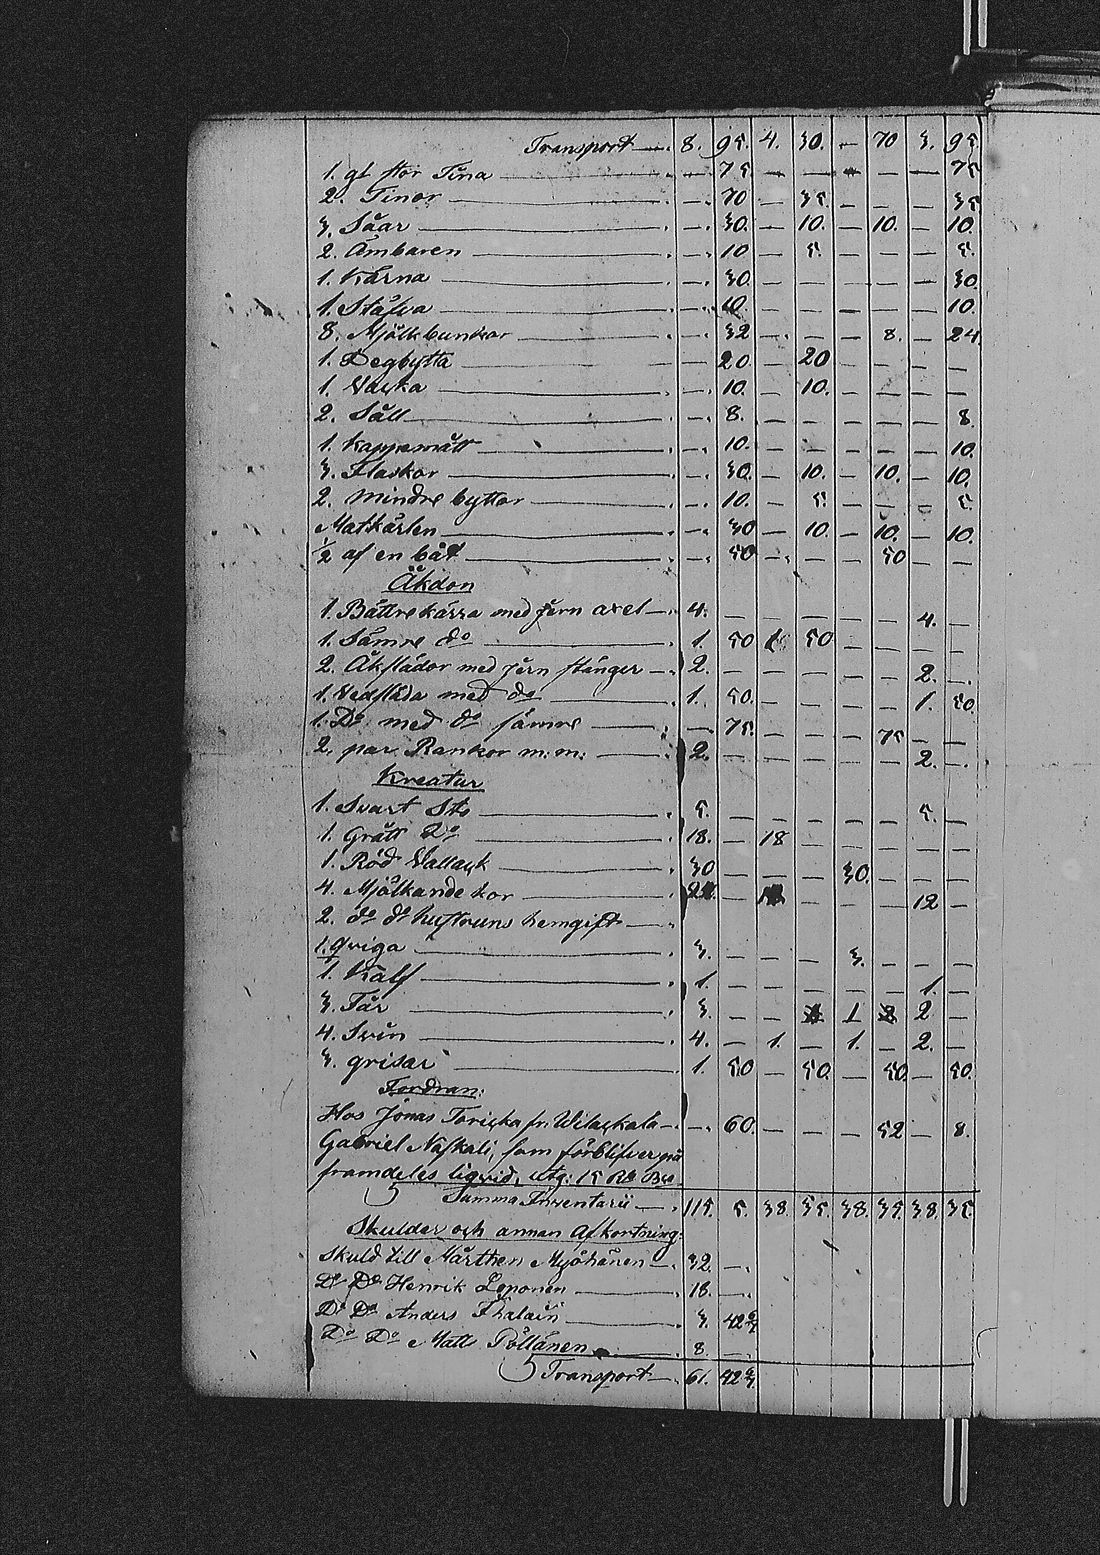 Transport — 8. 95. 4. 30. — 70 3. 95
1. gl stor Tina — — 75 — — — — — 75
2. Tinor — — 70 — 35 — — — 35
3. Såar — — 30. — 10. — 10. — 10.
2. Ämbaren — — 10 — 5. — — — 5.
1. Kärna — — 30 — — — — — 30.
1. Stäfva — — 10. — — — — — 10.
8. Mjölkbunkar — — 32 — — — 8. — 24
1. Degbytta — — 20 — 20 — — — —
1. Vacka — — 10. — 10. — — — —
2. Såll — — 8. — — — — — 8.
1. Kappemått — — 10. — — — — — 10.
3. Flaskor — — 30. — 10. — 10. — 10.
2. mindre byttor — — 10. — 5. — — — 5.
Matkärlen — — 30 — 10. — 10. — 10.
1/2 af en båt — — 50 — — — 50 — —
Åkdon
1. Bättre kärra med jern axel — 4. — — — — — 4. —
1. Sämre do — 1. 50 1. 50 — — — —
2. Åkslädor med jern stänger — 2. — — — — — 2. —
1. Vedsläda med do — 1. 50. — — — — 1. 50.
1. Do med do sämre — — 75. — — — 75 — —
2. par Rankor m:m: — 2. — — — — — 2. —
Kreatur
1. Svart Sto — 5. — — — — — 5. —
1. Grått Do — 18. — 18 — — — — —
1. Röd Vallack — 30 — — — 30. — — —
4. Mjölkande kor — 24. — — — — 12 —
2. do do hustruns hemgift —
1. Qviga — 3. — — — 3. — — —
1. Kalf — 1. — — — — — 1. —
3. Får — 3. — — 1 2 —
4. Svin — 4. — 1. — 1. — 2. —
3. grisar — 1. 50 — 50 — 50 — 50.
Fordran:
Hos Jonas Toricka fr. Wilackala — — 60. — — — 52 — 8.
Gabriel Naskali, som förblifver på
framdeles liqvid, utg: 15 Ro Bco
Summa Inventarii — 115. 5. 38. 35. 38. 35. 38. 35.
Skulder och annan Afkortning:
Skuld till Mårthen Myöhänen — 32. —
Do Do Henrik Leponen — 18. —
Do Do Anders Thalain — 3. 42 6/7
Do Do Matts Pöllänen — 8. —
Transport — 61. 42 6/7